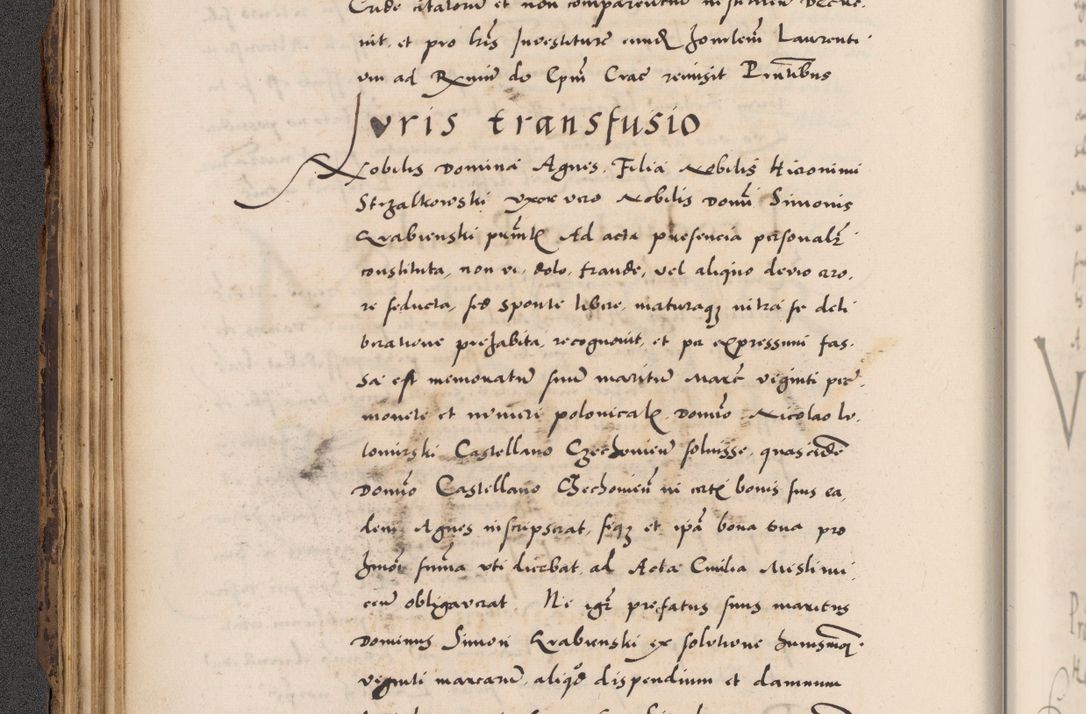 nit, et pro lr̃is Investiturę eundẽ honlem̃ Laurenti
um ad Rx̃mũ do Ep̃m Crac̃ remisit Pr̃ntibus
Iuris transfusio
Nobilis Domina Agnes, Filia Nobilis Hieronimi
Strzalkowski uxor vero Nobilis Domĩ Simonis
Grabienski pñmtẽ Ad acta presencia personalr̃
constituta, non vi, dolo, fraude, vel aliquo devio erro,
re seducta, sed sponte libere, maturaq3 intra se deli
beratione prehabita, recognovit, et per expressum fas,
sa est memoratũ suum maritũ Marc̃ viginti pec̃
monete et numeri polonicalẽ, Domĩo Nicolao lo,
Castellano Czechoviẽn solvisse, quas eidẽ
Domĩo Castellano Czechoviẽn in certis bonis suis ea,
dem Agnes inscripserat, seq3 et ip̃a bona sua pro
hmõi sum̃a uti dicebat, ad Acta Civilia
obligaverat. Ne igr̃ prefatus suus maritus
Dominus Simon Grabienski ex solutione huiusmoi
viginti marcarũ, aliqd̃ dispendium et damnum